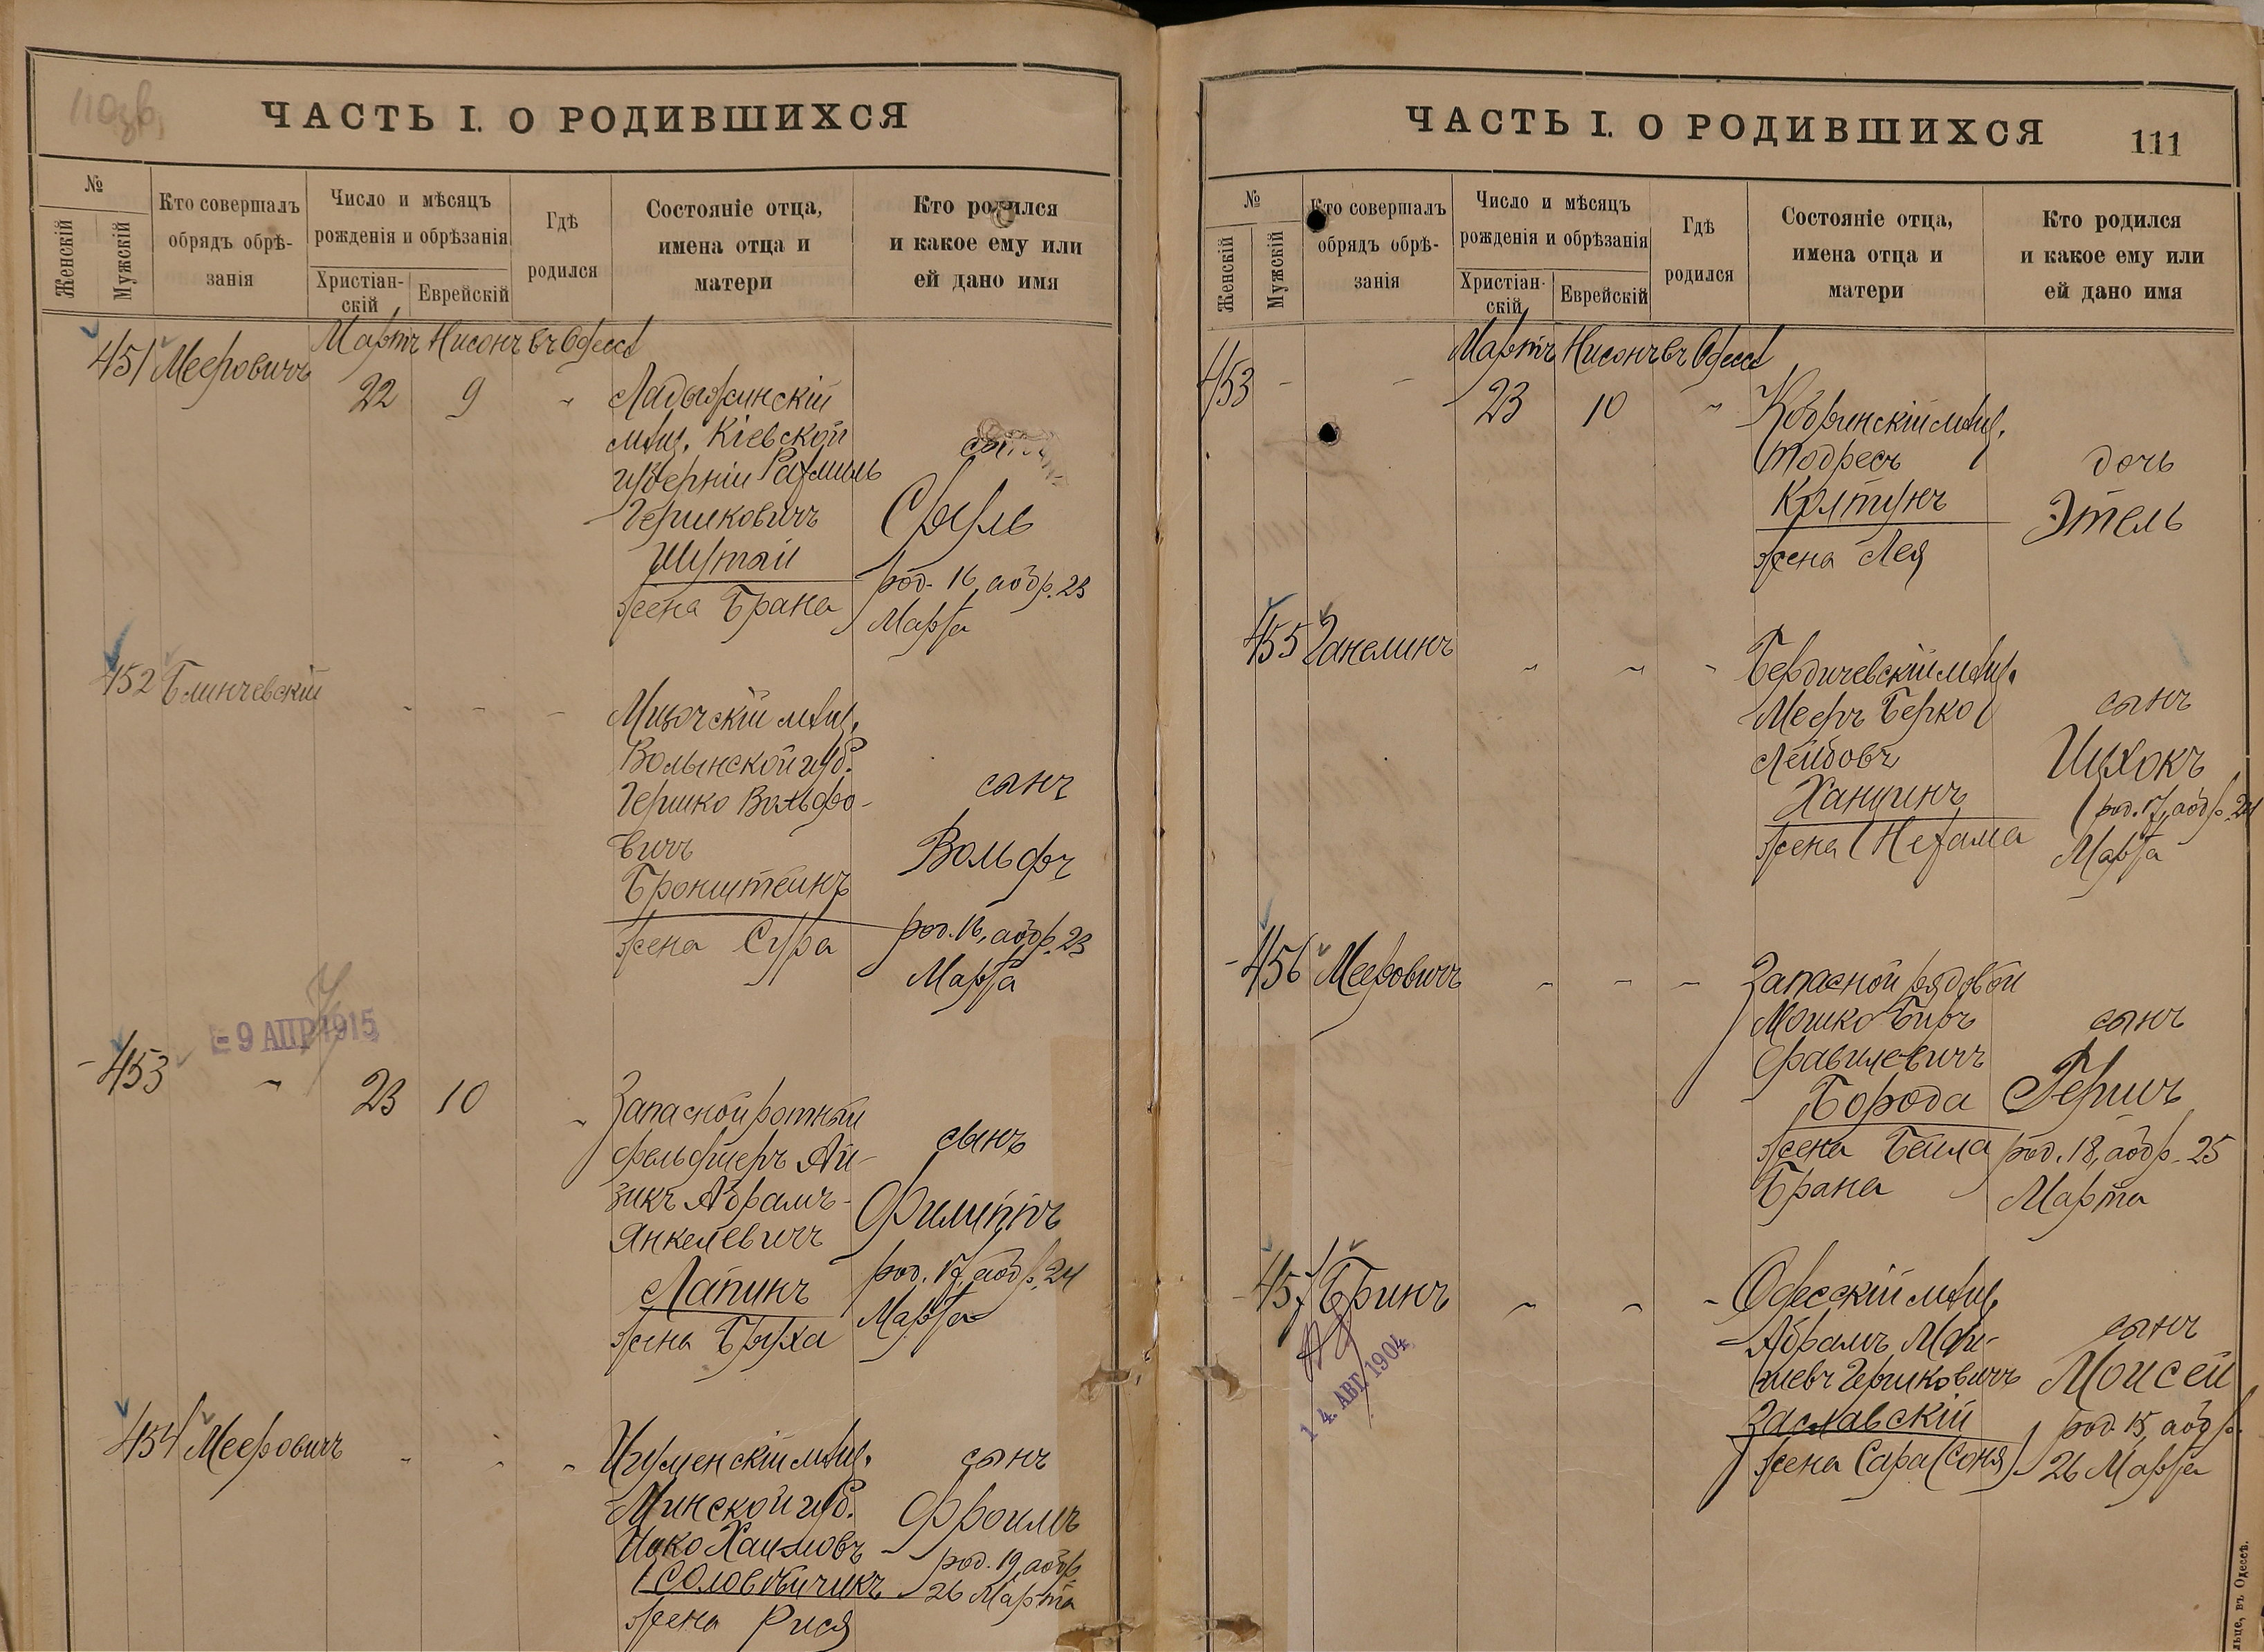 110зв,
ЧАСТЬ I. О РОДИВШИХСЯ
№
Женскій
Мужскій
Кто совершалъ
обрядъ обрѣ-
занія
Число и мѣсяцъ
рожденія и обрѣзанія
Христіан-
скій
Еврейскій
Гдѣ
родился
Состояніе отца,
имена отца и
матери
Кто родился
и какое ему или
ей дано имя
Мартъ Нисонъ въ Одессѣ
451 Мееровичъ 22 9 "
Ладыжинскій
мѣщ. Кіевской
губерніи Рахмиль
Гершковичъ
Шутый
жена Брана
сынъ
Сруль
род. 16, а обр. 23
Марта
452 Блинчевскій - - -
Мизочскій мѣщ.
Волынской губ.
Гершко Вольфо-
вичъ
Бронштейнъ
жена Сура
сынъ
Вольфъ
род. 16, а обр. 23
Марта
- 9 АПР 1915
453 " 23 10 "
Запасной ротный
фельдшеръ Ай-
зикъ Абрамъ-
Янкелевичъ
Лапинъ
жена Бруха
сынъ
Филиппъ
род. 17, а обр. 24
Марта
454 Мееровичъ " " "
Игуменскій мѣщ.
Минской губ.
Ицко Хаимовъ
Соловейчикъ
жена Рися
сынъ
Фроимъ
род. 19, а обр.
26 Марта
ЧАСТЬ I. О РОДИВШИХСЯ
111
№
Женскій
Мужскій
Кто совершалъ
обрядъ обрѣ-
занія
Число и мѣсяцъ
рожденія и обрѣзанія
Христіан-
скій
Еврейскій
Гдѣ
родился
Состояніе отца,
имена отца и
матери
Кто родился
и какое ему или
ей дано имя
Мартъ Нисонъ въ Одессѣ
453 - - 23 10 "
Кобринскій мѣщ.
Тодресъ
Колтунъ
жена Лея
дочь
Этель
455 Ганелинъ " " "
Бердичевскій мѣщ.
Мееръ Берко
Лейбовъ
Ханцинъ
жена Нехама
сынъ
Ицхокъ
род. 17, а обр. 24
Марта
456 Мееровичъ " " "
Запасной рядовой
Мошко Биръ
Сравилевичъ
Борода
жена Бейла
Брана
сынъ
Гершъ
род. 18, а обр. 25
Марта
457 Бринъ " " "
14. АВГ. 1904
Одесскій мѣщ.
Абрамъ
Гершковичъ
Заславскій
жена Сара (Соня)
сынъ
Моисей
род. 15, а обр.
26 Марта
въ Одессѣ.